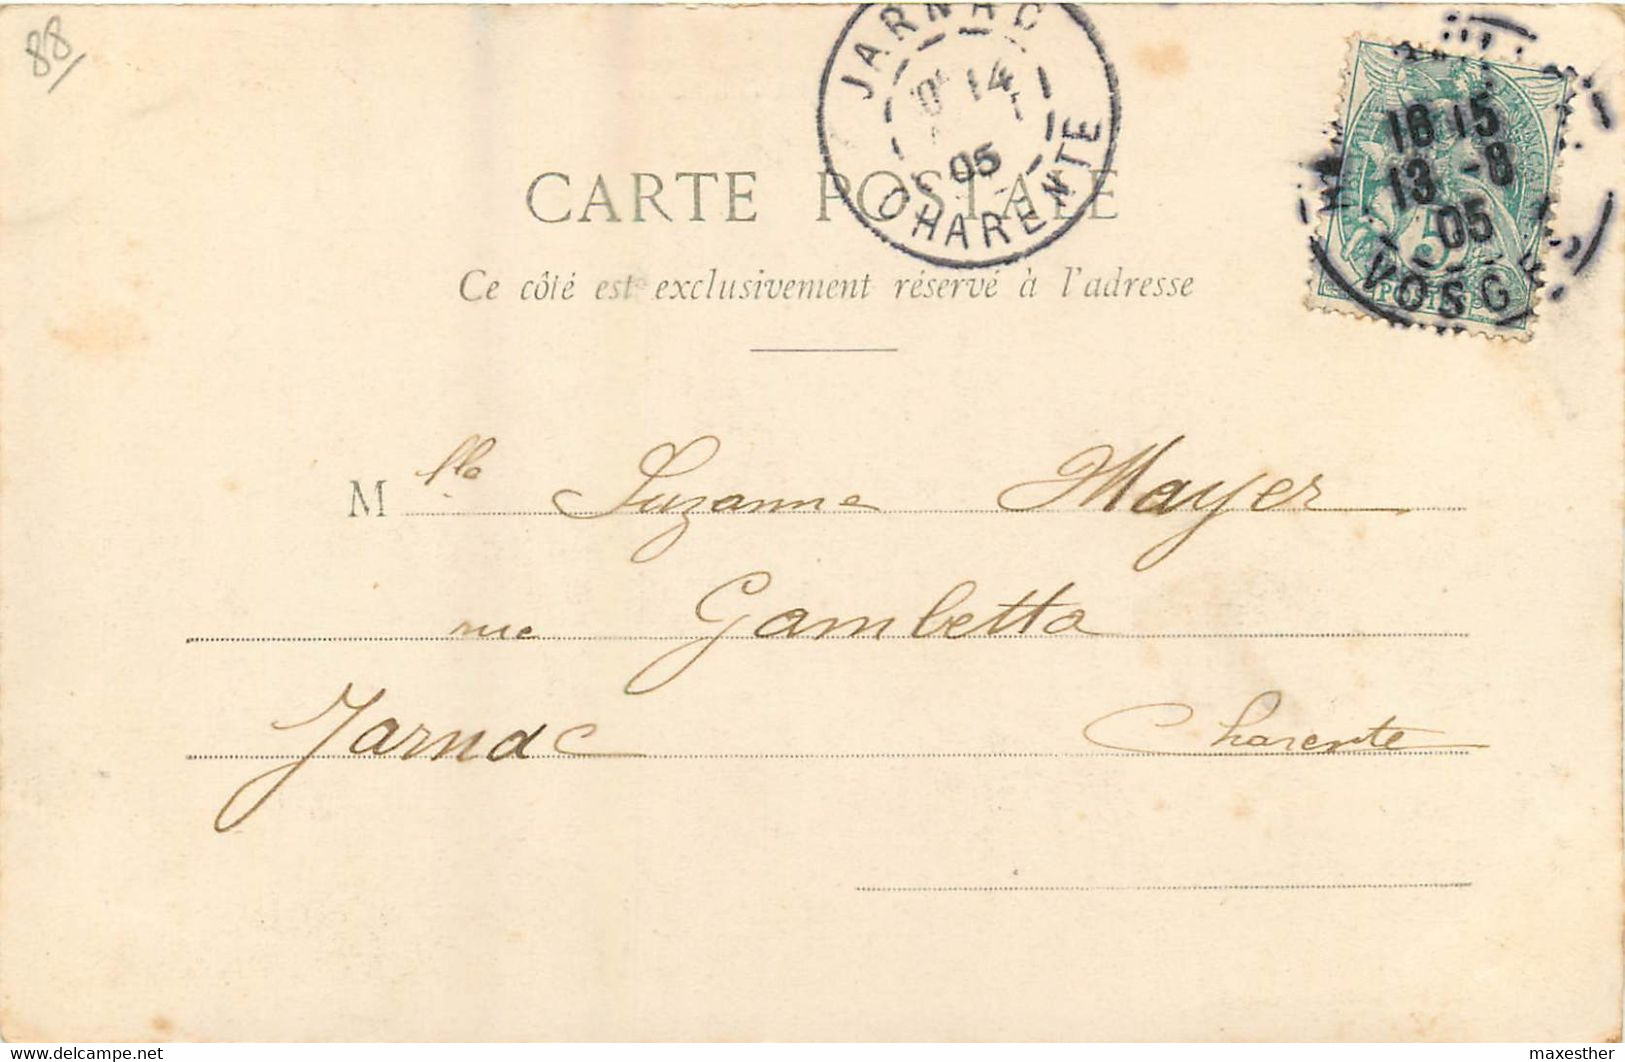 88
JARNAC
14
05
CHARENTE
18 15
13 -8
05
VOSG
5
POSTES
CARTE POSTALE
Ce côté est exclusivement réservé à l'adresse
Mlle Suzanne Mayer
rue Gambetta
Jarnac Charente
maxesther
www.delcampe.net